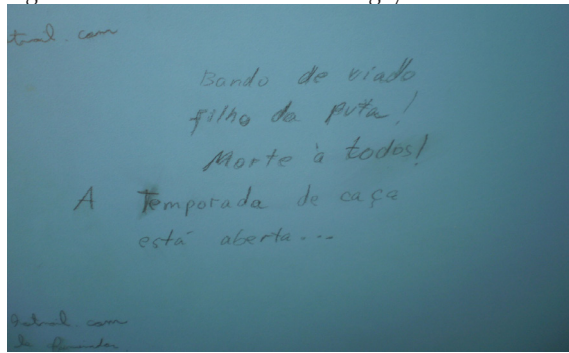 Bando de viado
filho da puta!
Morte à todos!
A Temporada de caça
está aberta...